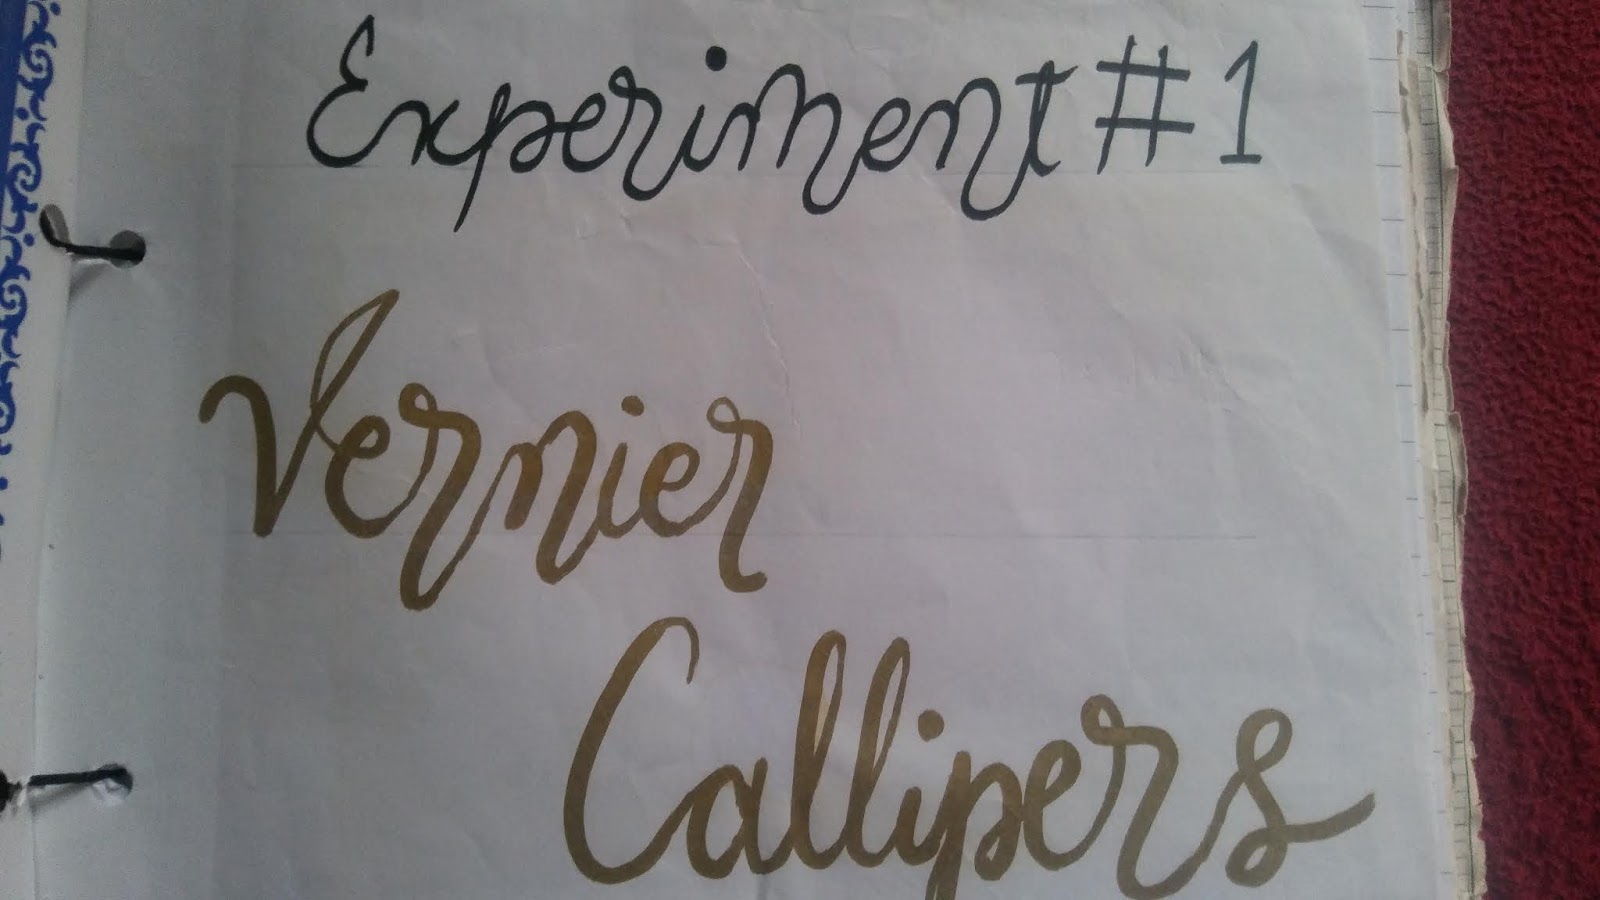 Experiment #1
Vernier
Callipers